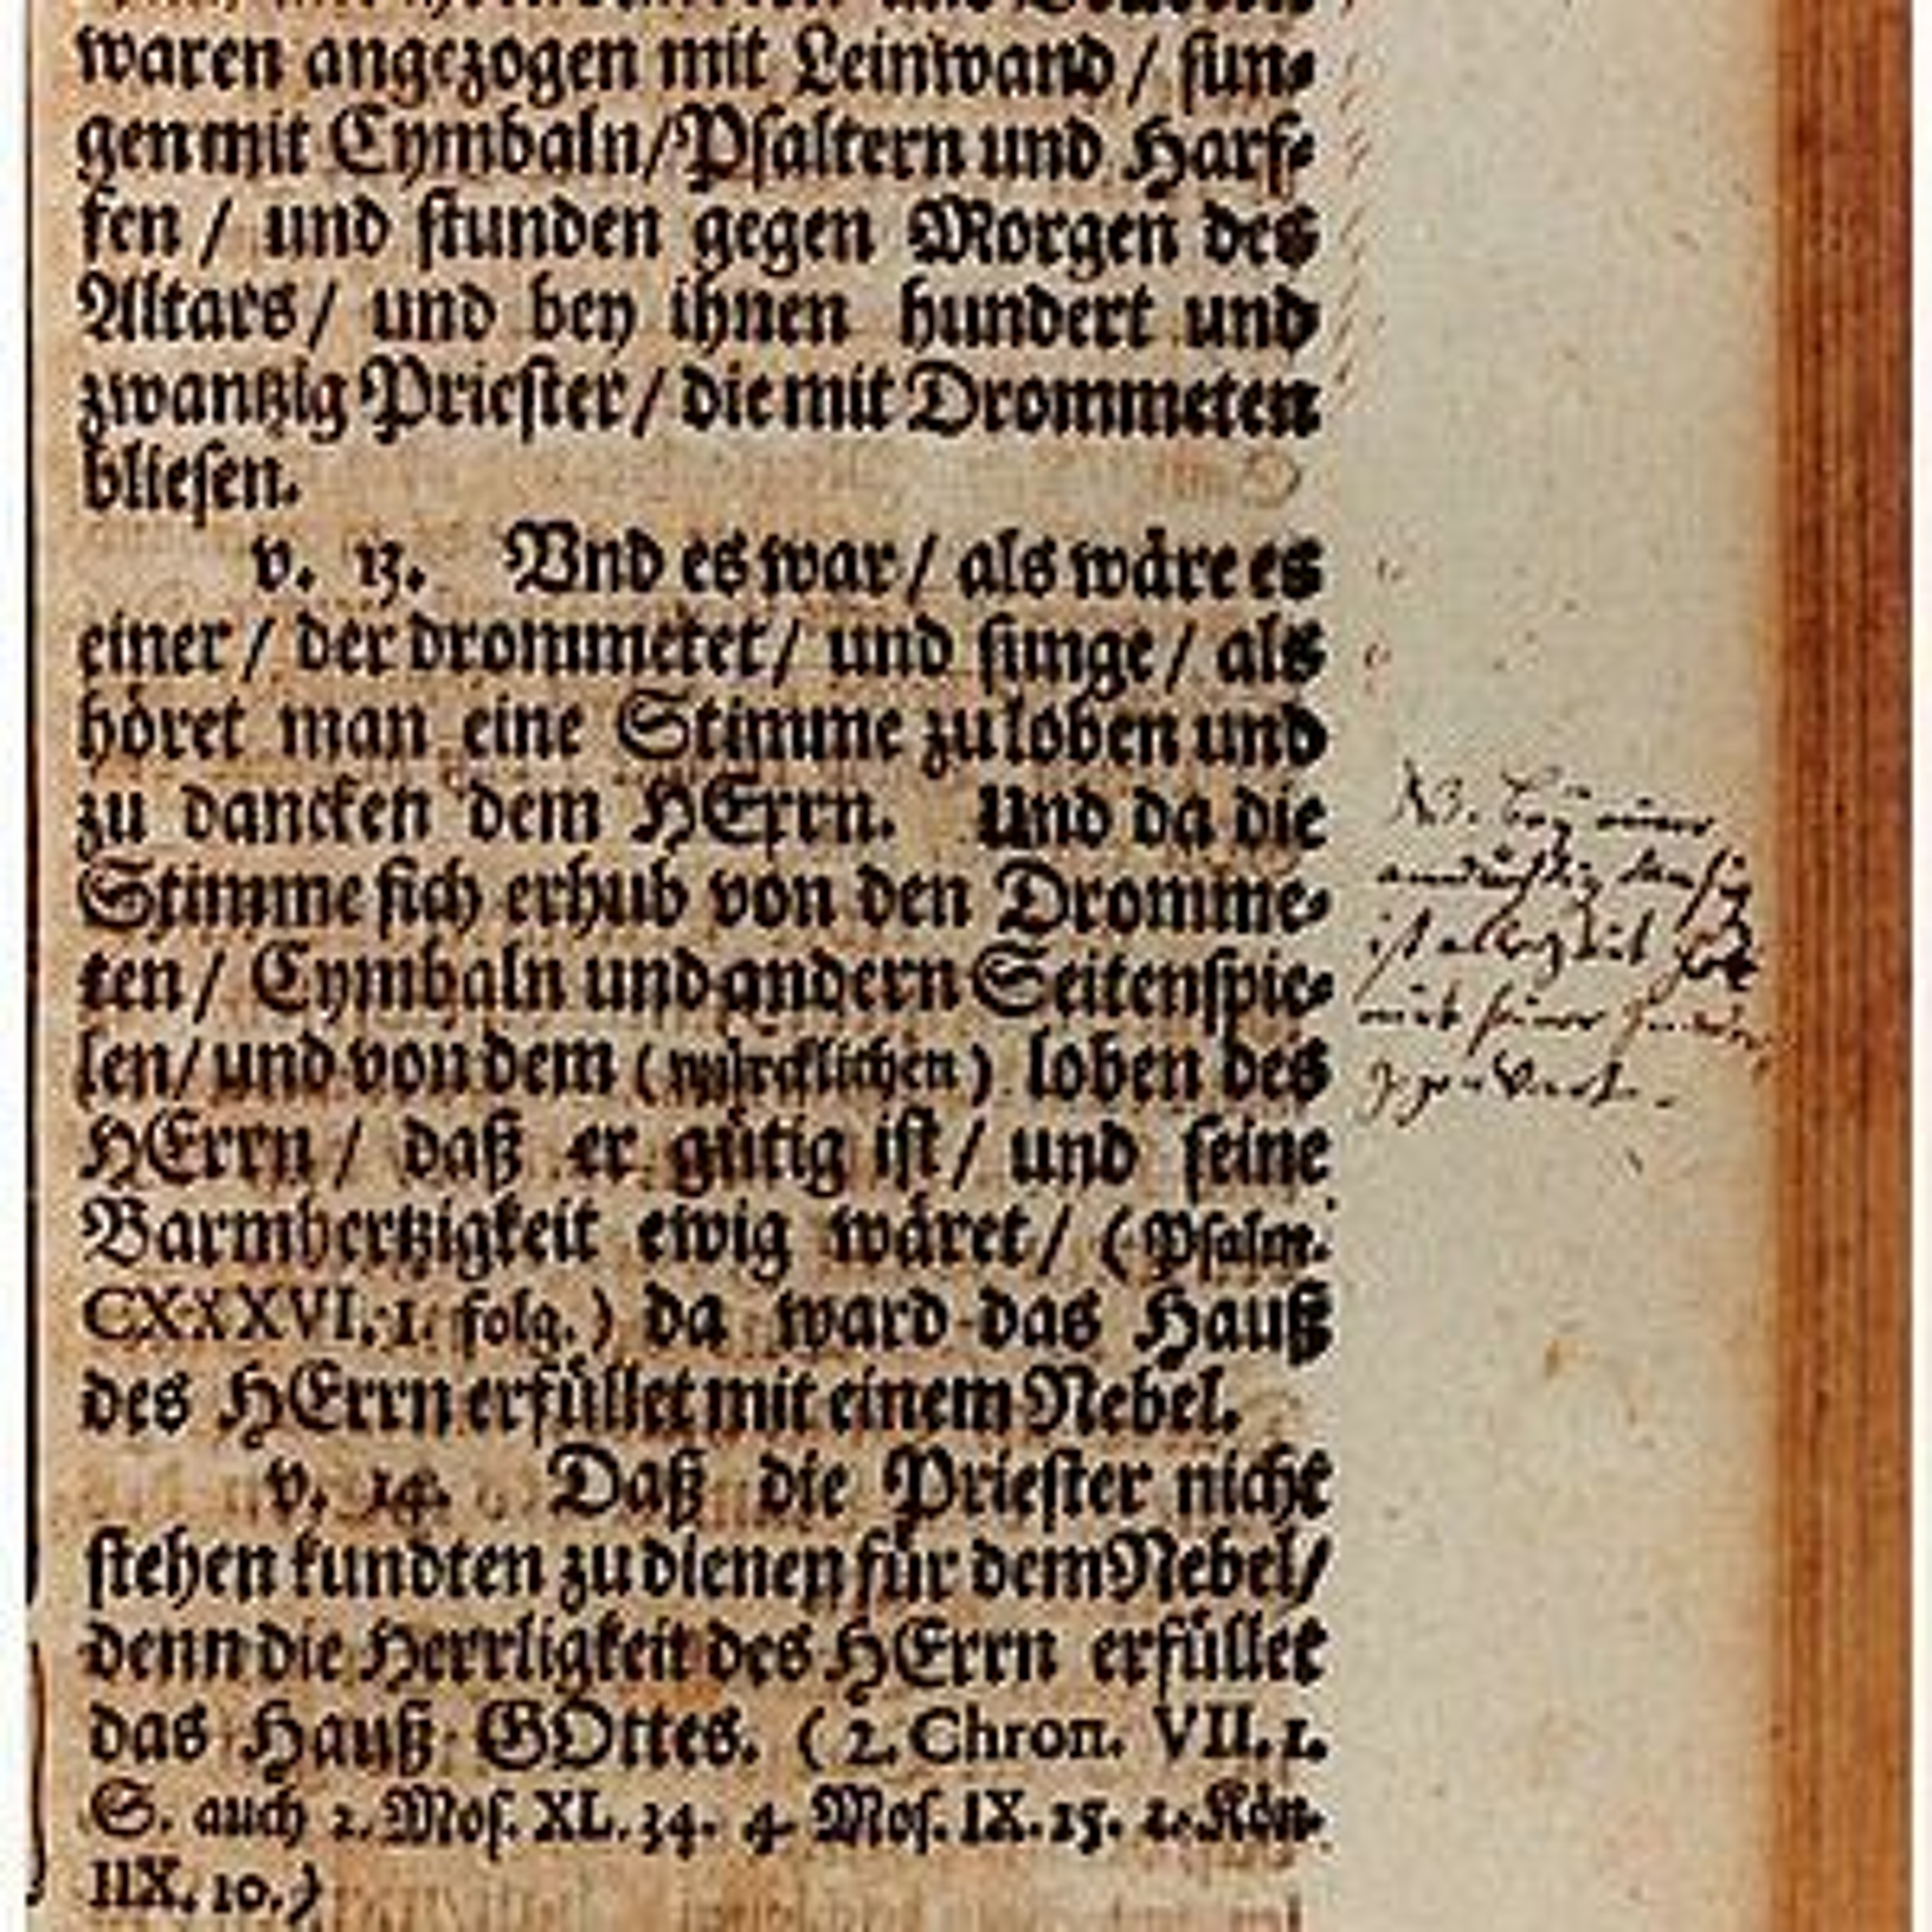 waren angezogen mit Leinwand / sun-
gen mit Cymbaln/Psaltern und Harf-
fen / und stunden gegen Morgen des
Altars/ und bey ihnen hundert und
zwantzig Priester / die mit Drommeten
bliesen.
v. 13. Vnd es war / als wåre es
einer / der drommetet/ und sunge / als
hôret man eine Stimme zu loben und
zu dancken dem HErrn. Und da die
Stimme sich erhub von den Dromme-
ten/ Cymbaln und andern Seitenspie-
len/ und von dem (wůrcklichen) loben des
HErrn / daß er gůtig ist / und seine
Barmhertzigkeit ewig wåret / (Psalm.
CXXXVI. 1. folg.) da ward das Hauß
des HErrn erfůllet mit einem Nebel.
v. 14. Daß die Priester nicht
stehen kundten zu dienen fůr dem Nebel/
denn die Herrligkeit des HErrn erfůllet
das Hauß GOttes. (2. Chron. VII. 1.
S. auch 2. Mos. XL. 34. 4. Mos. IX. 15. 1. Kön.
IIX. 10.)
NB. Bey einer
andächtig Musiq
ist allezeit Gott
mit seiner Gnaden
Gegenwart.